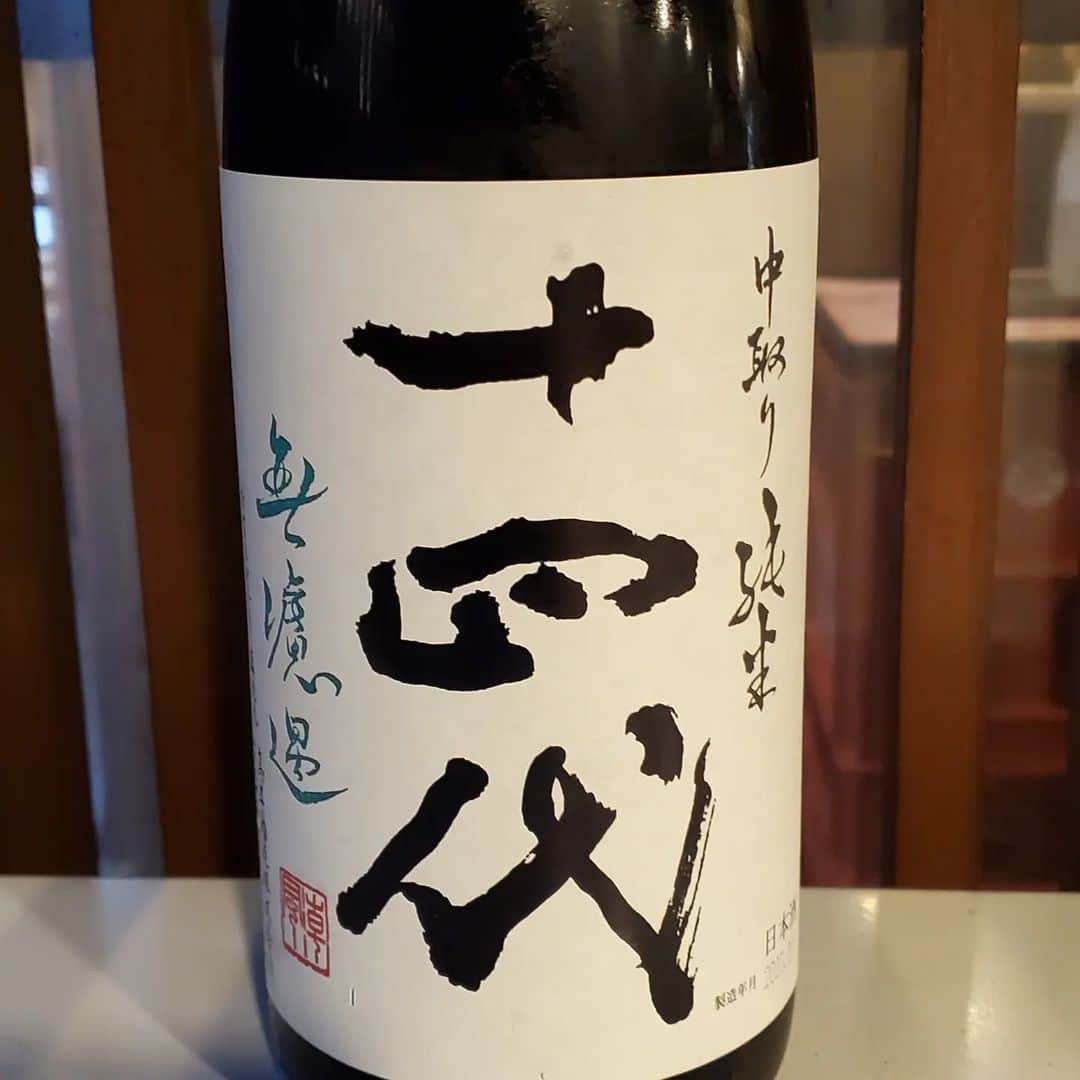 中取り 純米
十四代
無濾過
日本酒
製造年月